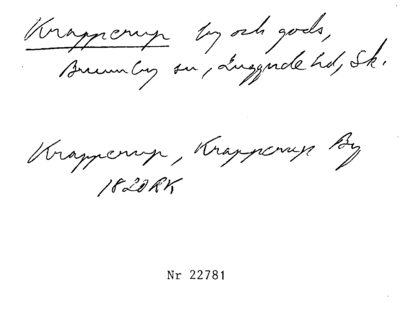 Krapperup by och gods,
Brunnby sn, Luggude hd, Sk.
Krapperup, Krapperup By
1820 RK
Nr 22781